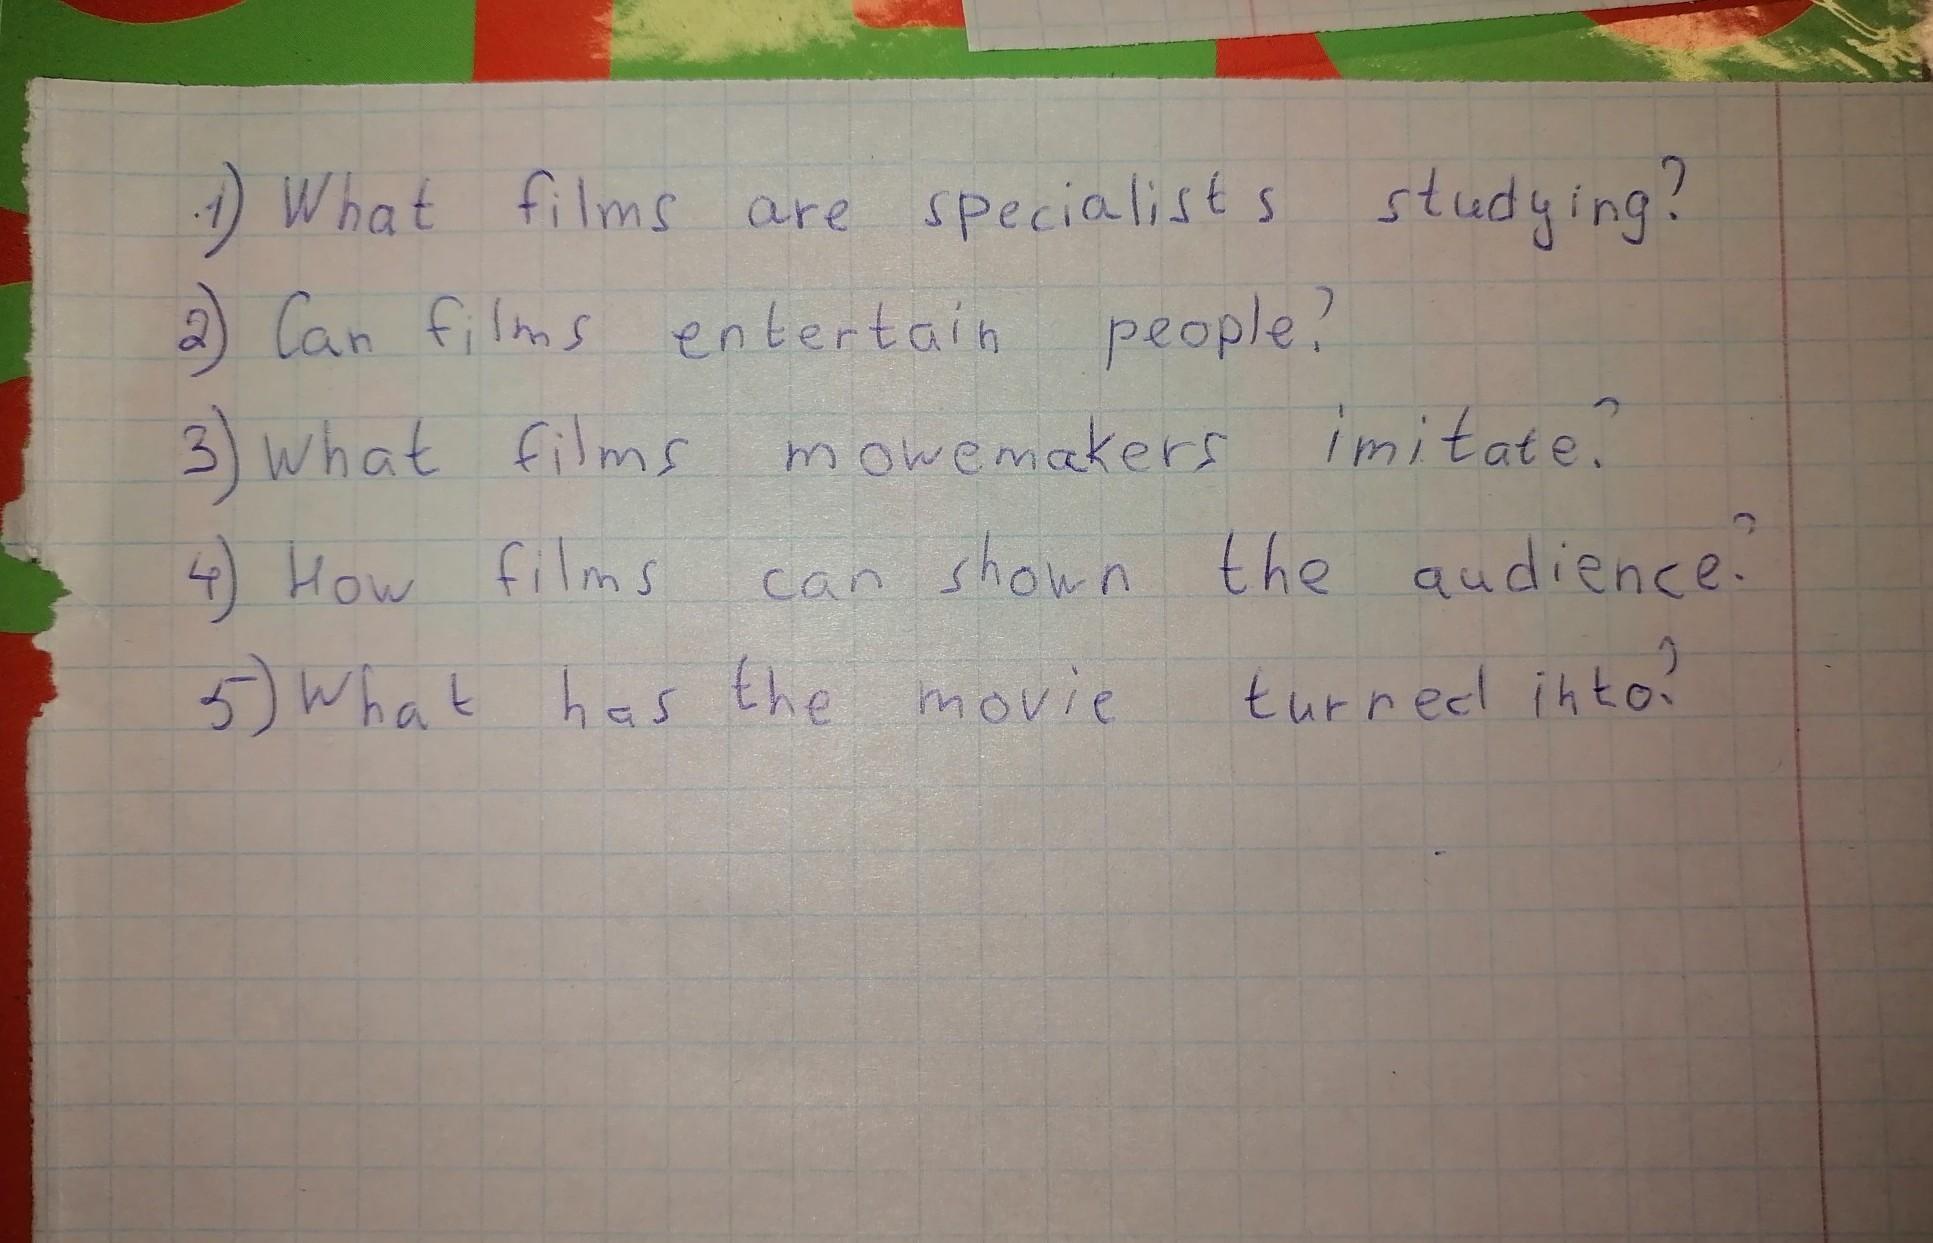 1) What films are specialists studying?
2) Can films entertain people?
3) What films mowemakers imitate?
4) How films can shown the audience?
5) What has the movie turned into?